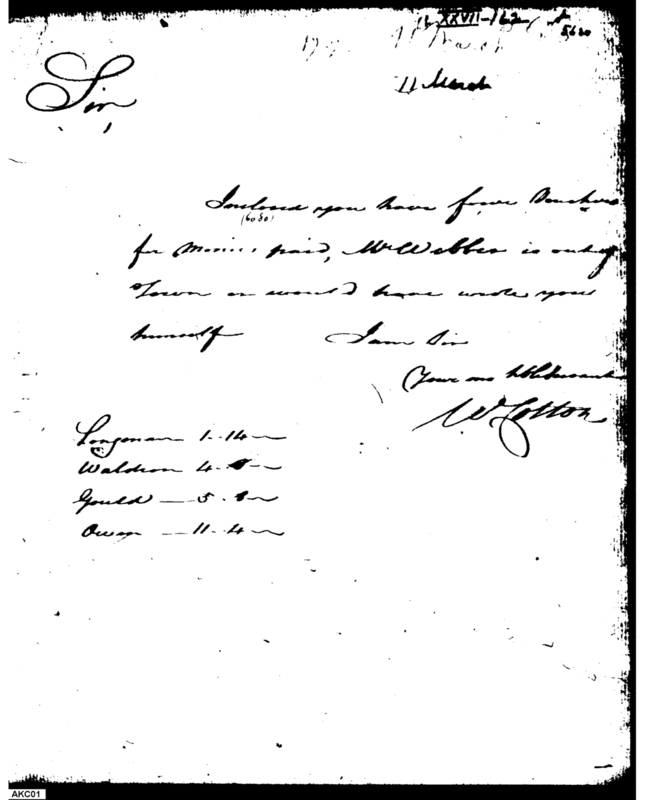 XXVII-162
11 March
11 March
Sir
Inclosed you have four Vouchers
for Monies paid, Mr Webber is out of
Town or would have wrote you
himself I am Sir
Your mo Hble Servant
W Cotton
Longman 1-14-
Waldron 4-
Gould - 5-8-
Owen - 11-4-
AKC01